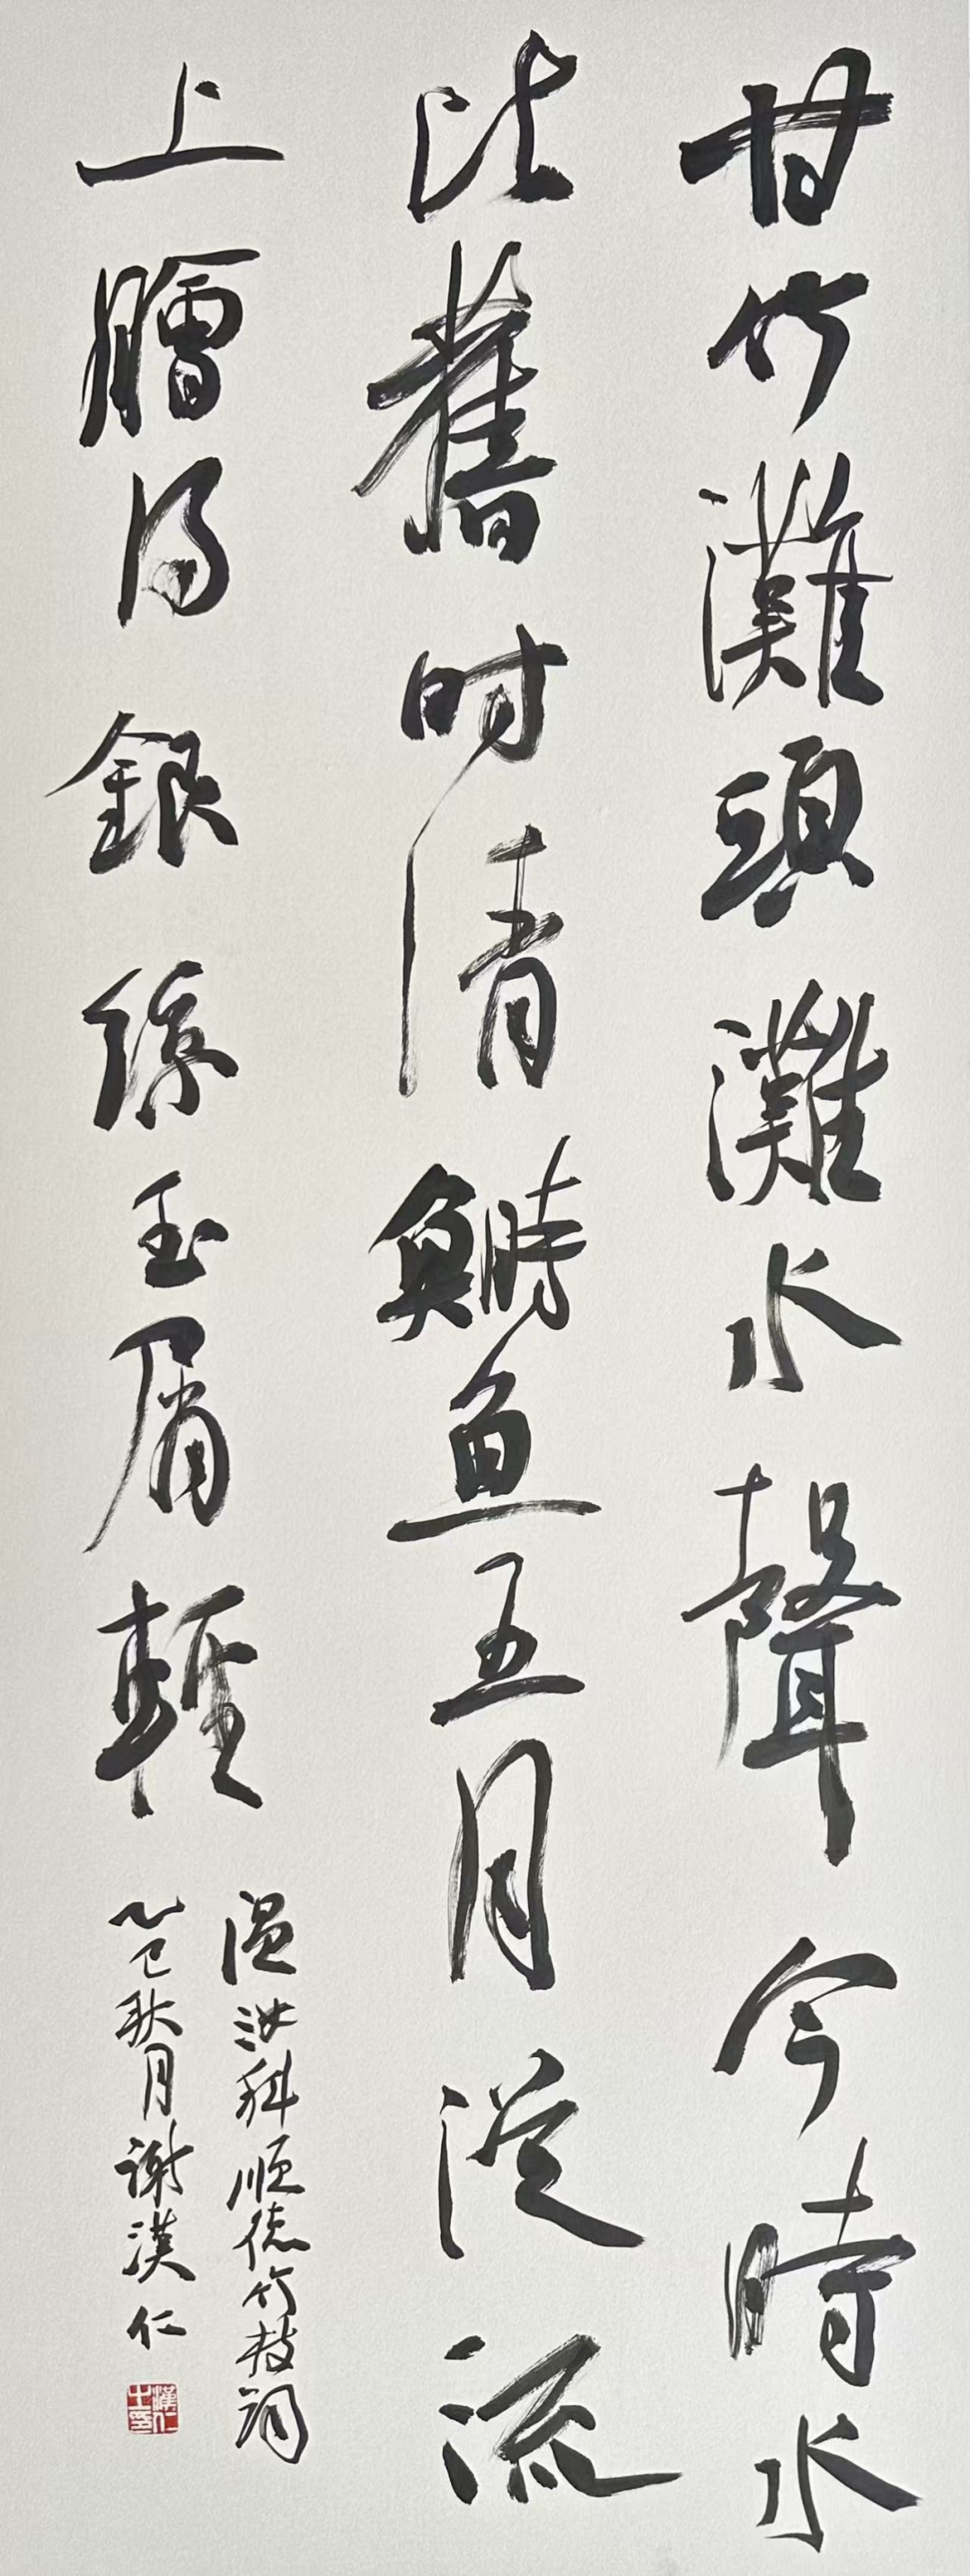 甘竹灘頭灘水聲今時水
比舊时清鰣鱼五月從流
上膾得銀絲玉屑輕
温汝科順德竹枝詞
乙巳秋月謝漢仁
漢仁之印